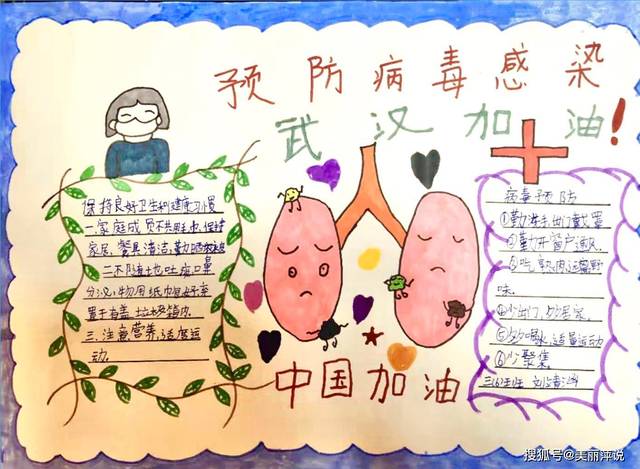 预防病毒感染
武汉加油!
保持良好卫生和健康习惯
一家庭成员不共用毛巾,保持
家居、餐具清洁,勤晒衣被
二不随地吐痰口鼻
分泌物用纸巾包好弃
置于有盖垃圾箱内
三、注意营养,适度运
动
病毒预防
①勤洗手,出门戴罩
②勤开窗户通风
③吃熟肉,远离野
味
④少出门,少居家
⑤多喝水,适量运动
⑥少聚集
中国加油
搜狐号@美丽萍说